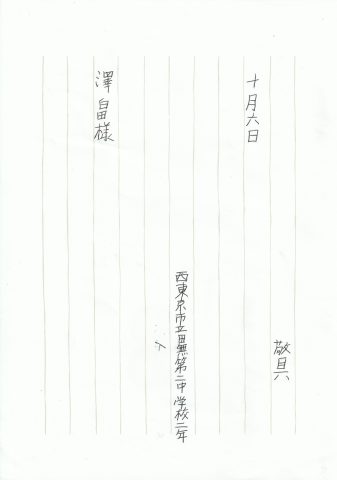 敬具
十月六日
西東京市立田無第二中学校二年
澤畠様